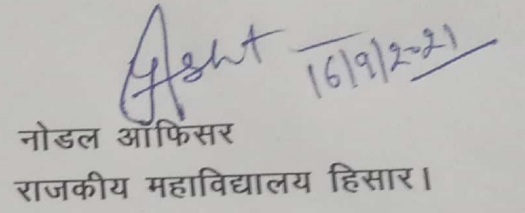 16/9/2021
नोडल ऑफिसर
राजकीय महाविद्यालय हिसार।